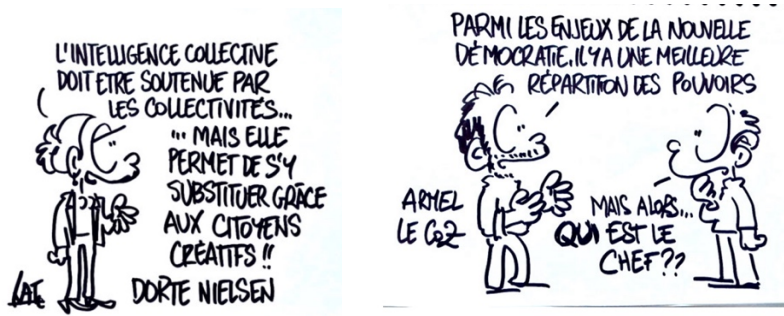 L'INTELLIGENCE COLLECTIVE
DOIT ETRE SOUTENUE PAR
LES COLLECTIVITÉS...
... MAIS ELLE
PERMET DE S'Y
SUBSTITUER GRÂCE
AUX CITOYENS
CRÉATIFS !!
DORTE NIELSEN
PARMI LES ENJEUX DE LA NOUVELLE
DÉMOCRATIE. IL Y A UNE MEILLEURE
RÉPARTITION DES POUVOIRS
ARMEL
LE COZ
MAIS ALORS...
QUI EST LE
CHEF ??